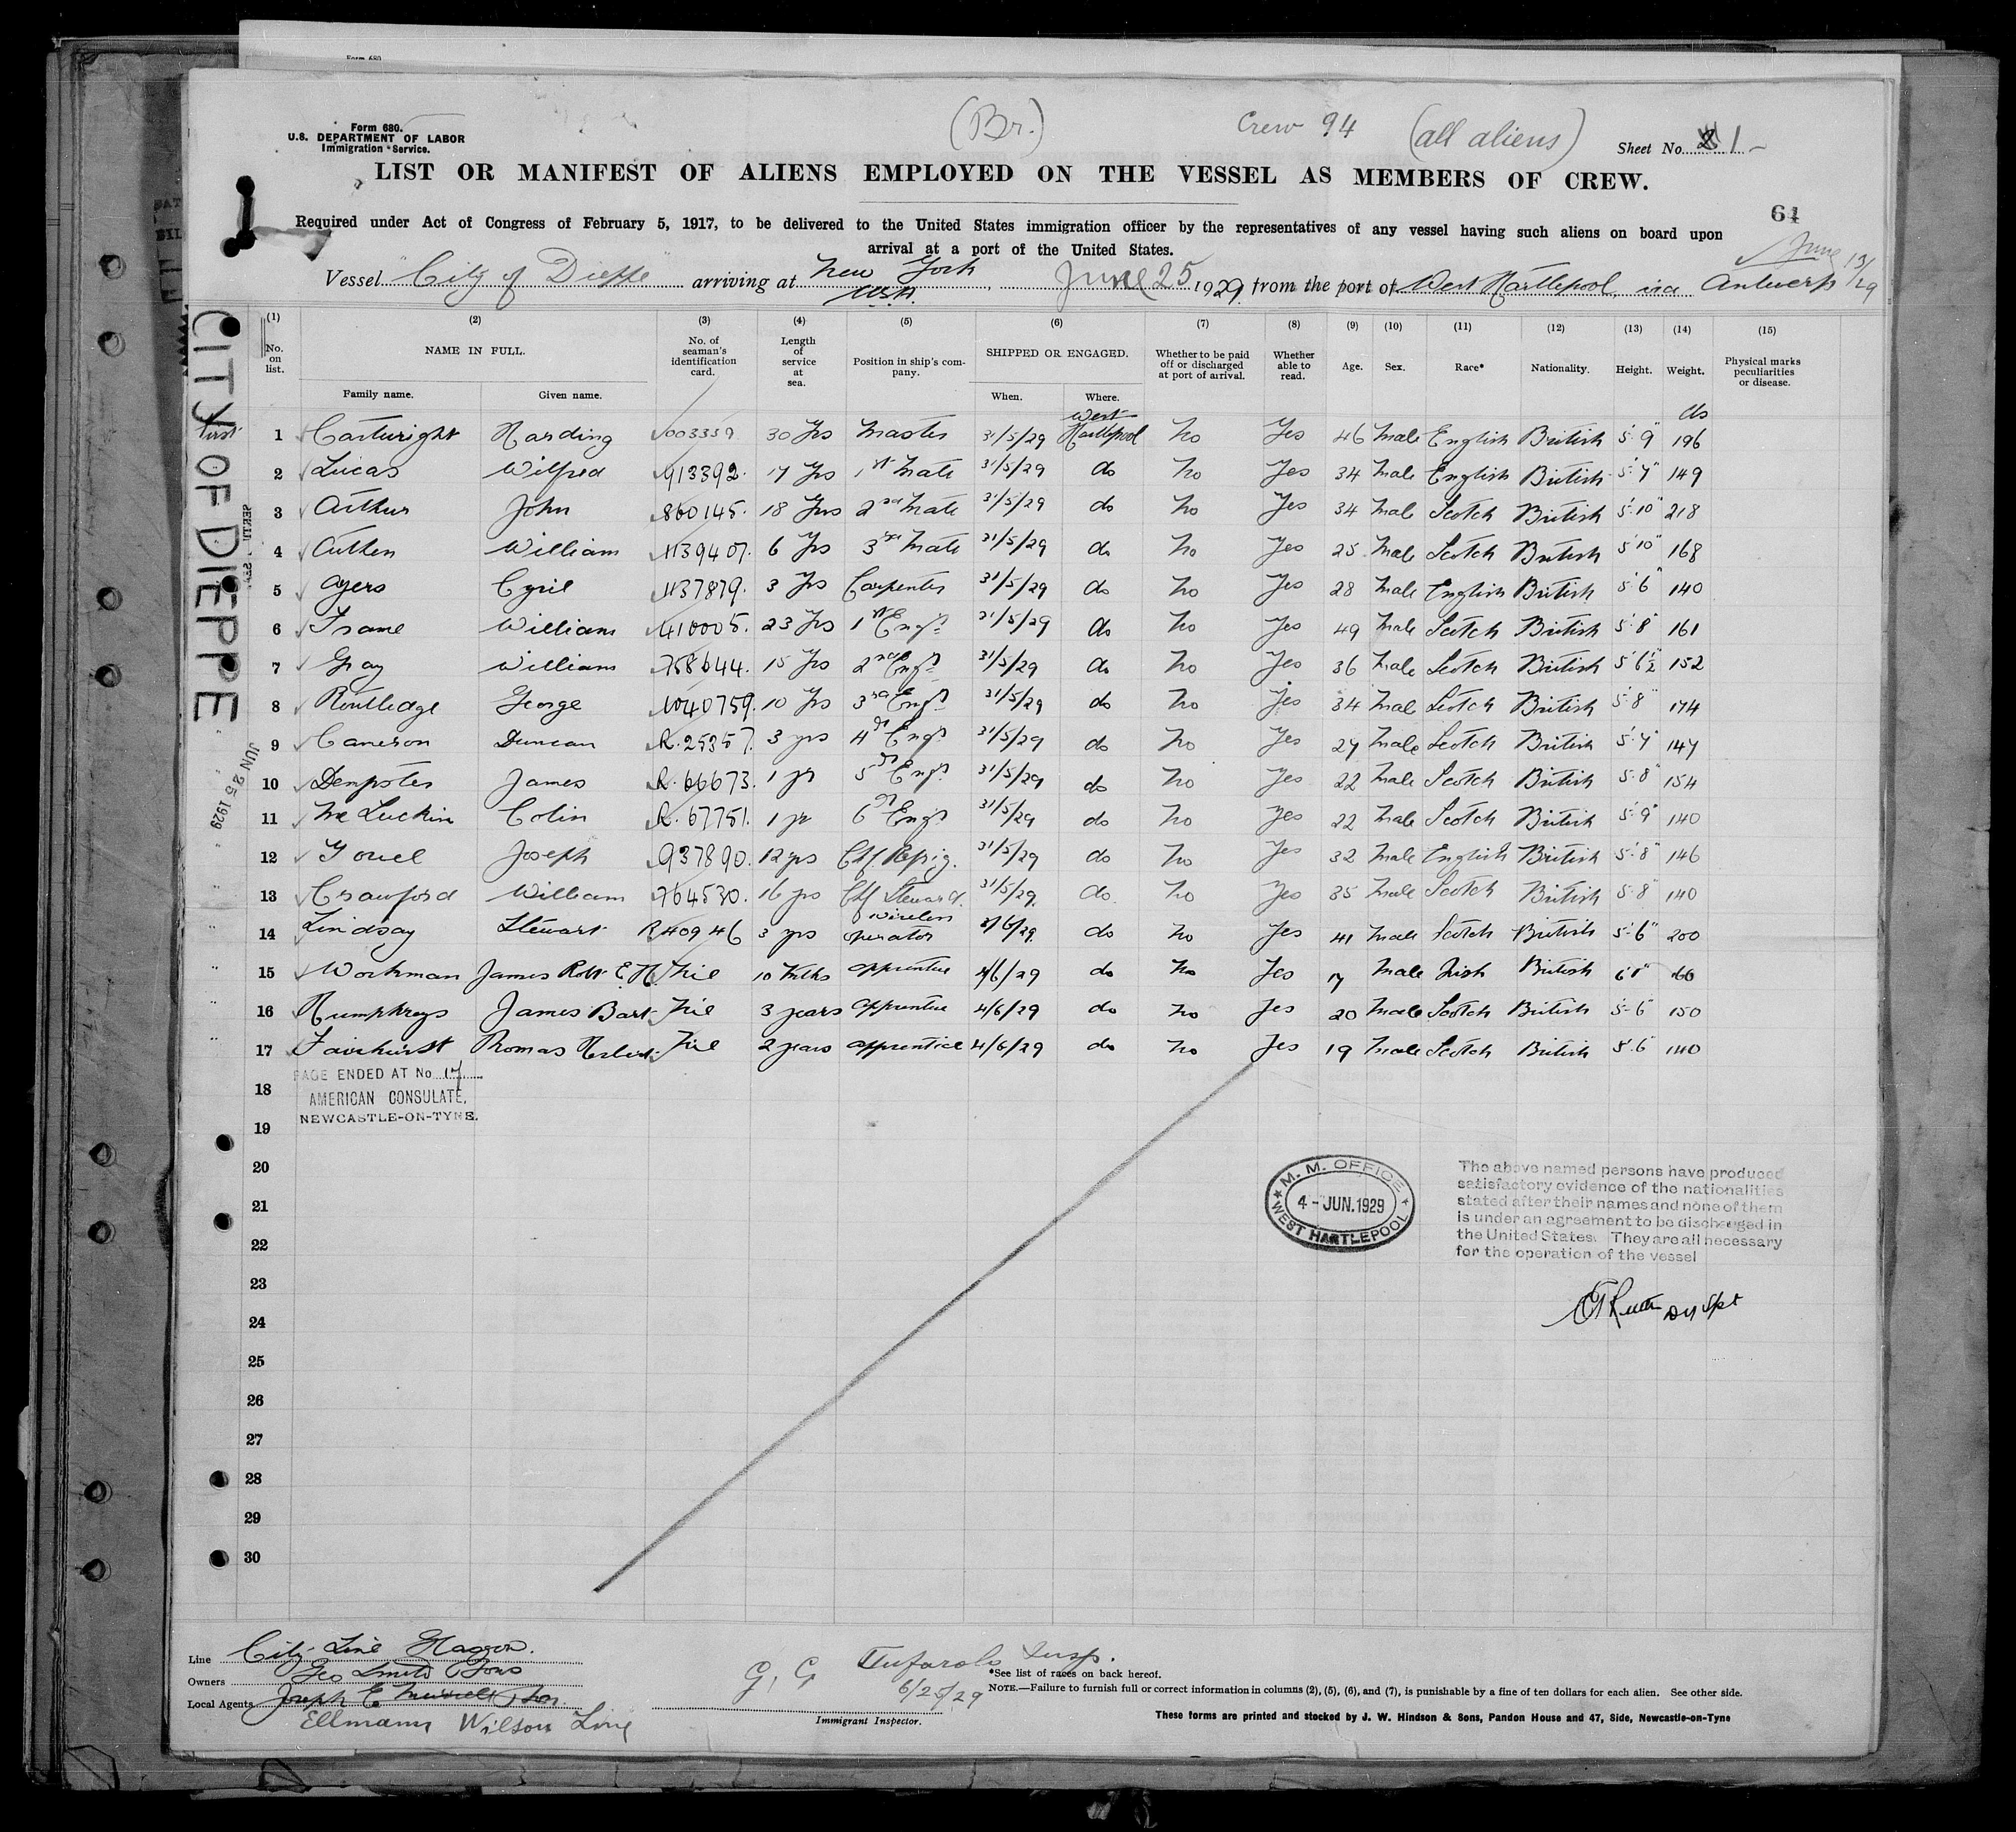 Form 680.
U.S. DEPARTMENT OF LABOR
Immigration Service.
(Br.)
Crew 94 (all aliens)
Sheet No. 1
LIST OR MANIFEST OF ALIENS EMPLOYED ON THE VESSEL AS MEMBERS OF CREW.
61
Required under Act of Congress of February 5, 1917, to be delivered to the United States immigration officer by the representatives of any vessel having such aliens on board upon
arrival at a port of the United States.
June 13/29
Vessel "City of Dieppe" arriving at New York U.S.A., June 25 1929 from the port of West Hartlepool, via Antwerp
(1) (2) (3) (4) (5) (6) (7) (8) (9) (10) (11) (12) (13) (14) (15)
No. on list. NAME IN FULL. Family name. Given name. No. of seaman's identification card. Length of service at sea. Position in ship's company. SHIPPED OR ENGAGED. When. Where. Whether to be paid off or discharged at port of arrival. Whether able to read. Age. Sex. Race* Nationality. Height. Weight. Physical marks peculiarities or disease.
1 Cartwright Harding 1003359 30 Yrs Master 31/5/29 West Hartlepool No Yes 46 Male English British 5'9" 196
2 Lucas Wilfred 913392. 17 Yrs 1st Mate 31/5/29 do No Yes 34 Male English British 5'7" 149
3 Arthur John 860145. 18 Yrs 2nd Mate 31/5/29 do No Yes 34 Male Scotch British 5'10" 218
4 William 1139407. 6 Yrs 3rd Mate 31/5/29 do No Yes 25 Male Scotch British 5'10" 168
5 Ayers Cyril 1137879. 3 Yrs Carpenter 31/5/29 do No Yes 28 Male English British 5'6" 140
6 Frame William 410005. 23 Yrs 1st Engr 31/5/29 do No Yes 49 Male Scotch British 5'8" 161
7 Gray William 758644. 15 Yrs 2nd Engr 31/5/29 do No Yes 36 Male Scotch British 5'6½" 152
8 Routledge George 1040759. 10 Yrs 3rd Engr 31/5/29 do No Yes 34 Male Scotch British 5'8" 174
9 Cameron Duncan R.25357. 3 yrs 4th Engr 31/5/29 do No Yes 27 Male Scotch British 5'7" 147
10 Dempster James R.66673. 1 yr 5th Engr 31/5/29 do No Yes 22 Male Scotch British 5'8" 154
11 McLuckie Colin R.67751. 1 yr 6th Engr 31/5/29 do No Yes 22 Male Scotch British 5'9" 140
12 Joseph 937890. 12 yrs Chf. Refrig. 31/5/29 do No Yes 32 Male English British 5'8" 146
13 Crawford William 764530. 16 yrs Chf Steward. 31/5/29. do. No Yes 35 Male Scotch British 5'8" 140
14 Lindsay Stewart R40946 3 yrs wireless operator do No Yes 41 Male Scotch British 5'6" 200
15 Workman James Robt E. H. Nil 10 Mths apprentice 4/6/29 do No Yes 17 Male Irish British 6'1"
16 Humphreys James Bart. Nil 3 years apprentice 4/6/29 do No Yes 20 Male Scotch British 5-6" 150
17 Fairhurst Thomas Nil 2 years apprentice 4/6/29 do No Yes 19 Male Scotch British 5'.6" 140
PAGE ENDED AT No 17
AMERICAN CONSULATE,
NEWCASTLE-ON-TYNE.
18
19
20
21
22
23
24
25
26
27
28
29
30
CITY OF DIEPPE
JUN 25 1929
M. M. OFFICE
4 - JUN. 1929
WEST HARTLEPOOL
The above named persons have produced
satisfactory evidence of the nationalities
stated after their names and none of them
is under an agreement to be discharged in
the United States. They are all necessary
for the operation of the vessel
Line City Line Glasgow.
Owners Geo Smith & Sons
Local Agents
Ellmann Wilson Line
6/25/29
Immigrant Inspector.
*See list of races on back hereof.
NOTE.—Failure to furnish full or correct information in columns (2), (5), (6), and (7), is punishable by a fine of ten dollars for each alien. See other side.
These forms are printed and stocked by J. W. Hindson & Sons, Pandon House and 47, Side, Newcastle-on-Tyne